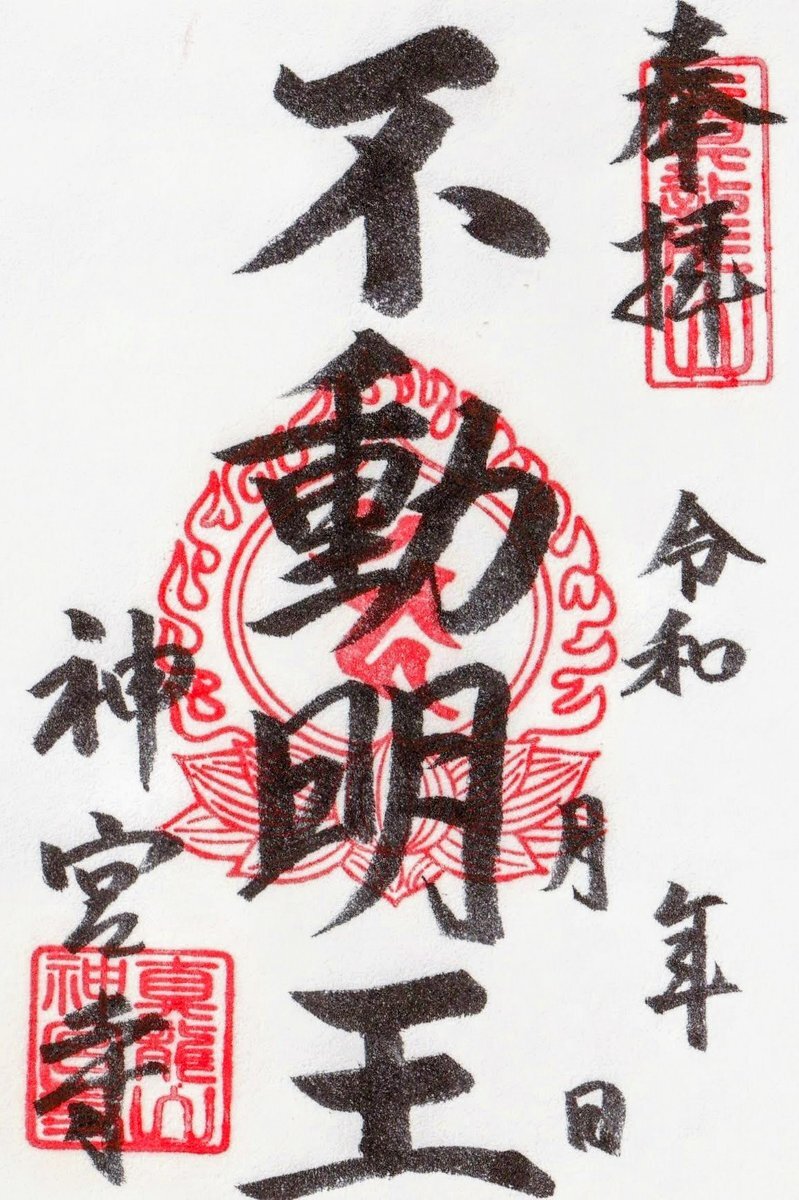 奉拝
令和
年
月
日
不動明王
神宮寺
真龍山
神宮寺